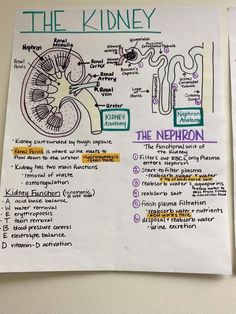 THE KIDNEY
Nephron
Renal Medulla
Renal Cortex
Renal Pelvis
Renal Artery
Renal Vein
Ureter
KIDNEY Anatomy
Glomerulus
Bowman's Capsule
Proximal Convoluted Tubule
Distal Convoluted Tubule
Loop Henle
Nephron Anatomy
Kidney surrounded by tough capsule
Renal Pelvis is where urine meets to
flow down to the ureter
Kidney has two main functions
- removal of waste
- osmoregulation
Kidney Function (mnemonic: A WET BED)
- A acid base balance
- W water removal
- E erythropoesis
- T toxin removal
- B blood pressure control
- E electrolyte balance
D vitamin-D activation
THE NEPHRON
The functional unit of
the Kidney
① Filters out RBC's, only plasma
enters nephron
② Start to filter plasma
- reabsorb sugar + water
③ reabsorb water
④ reabsorb salt
⑤ finish plasma filtration
- reabsorb water + nutrients
- ADH works here
⑥ disposal + reabsorb water
- urine excretion